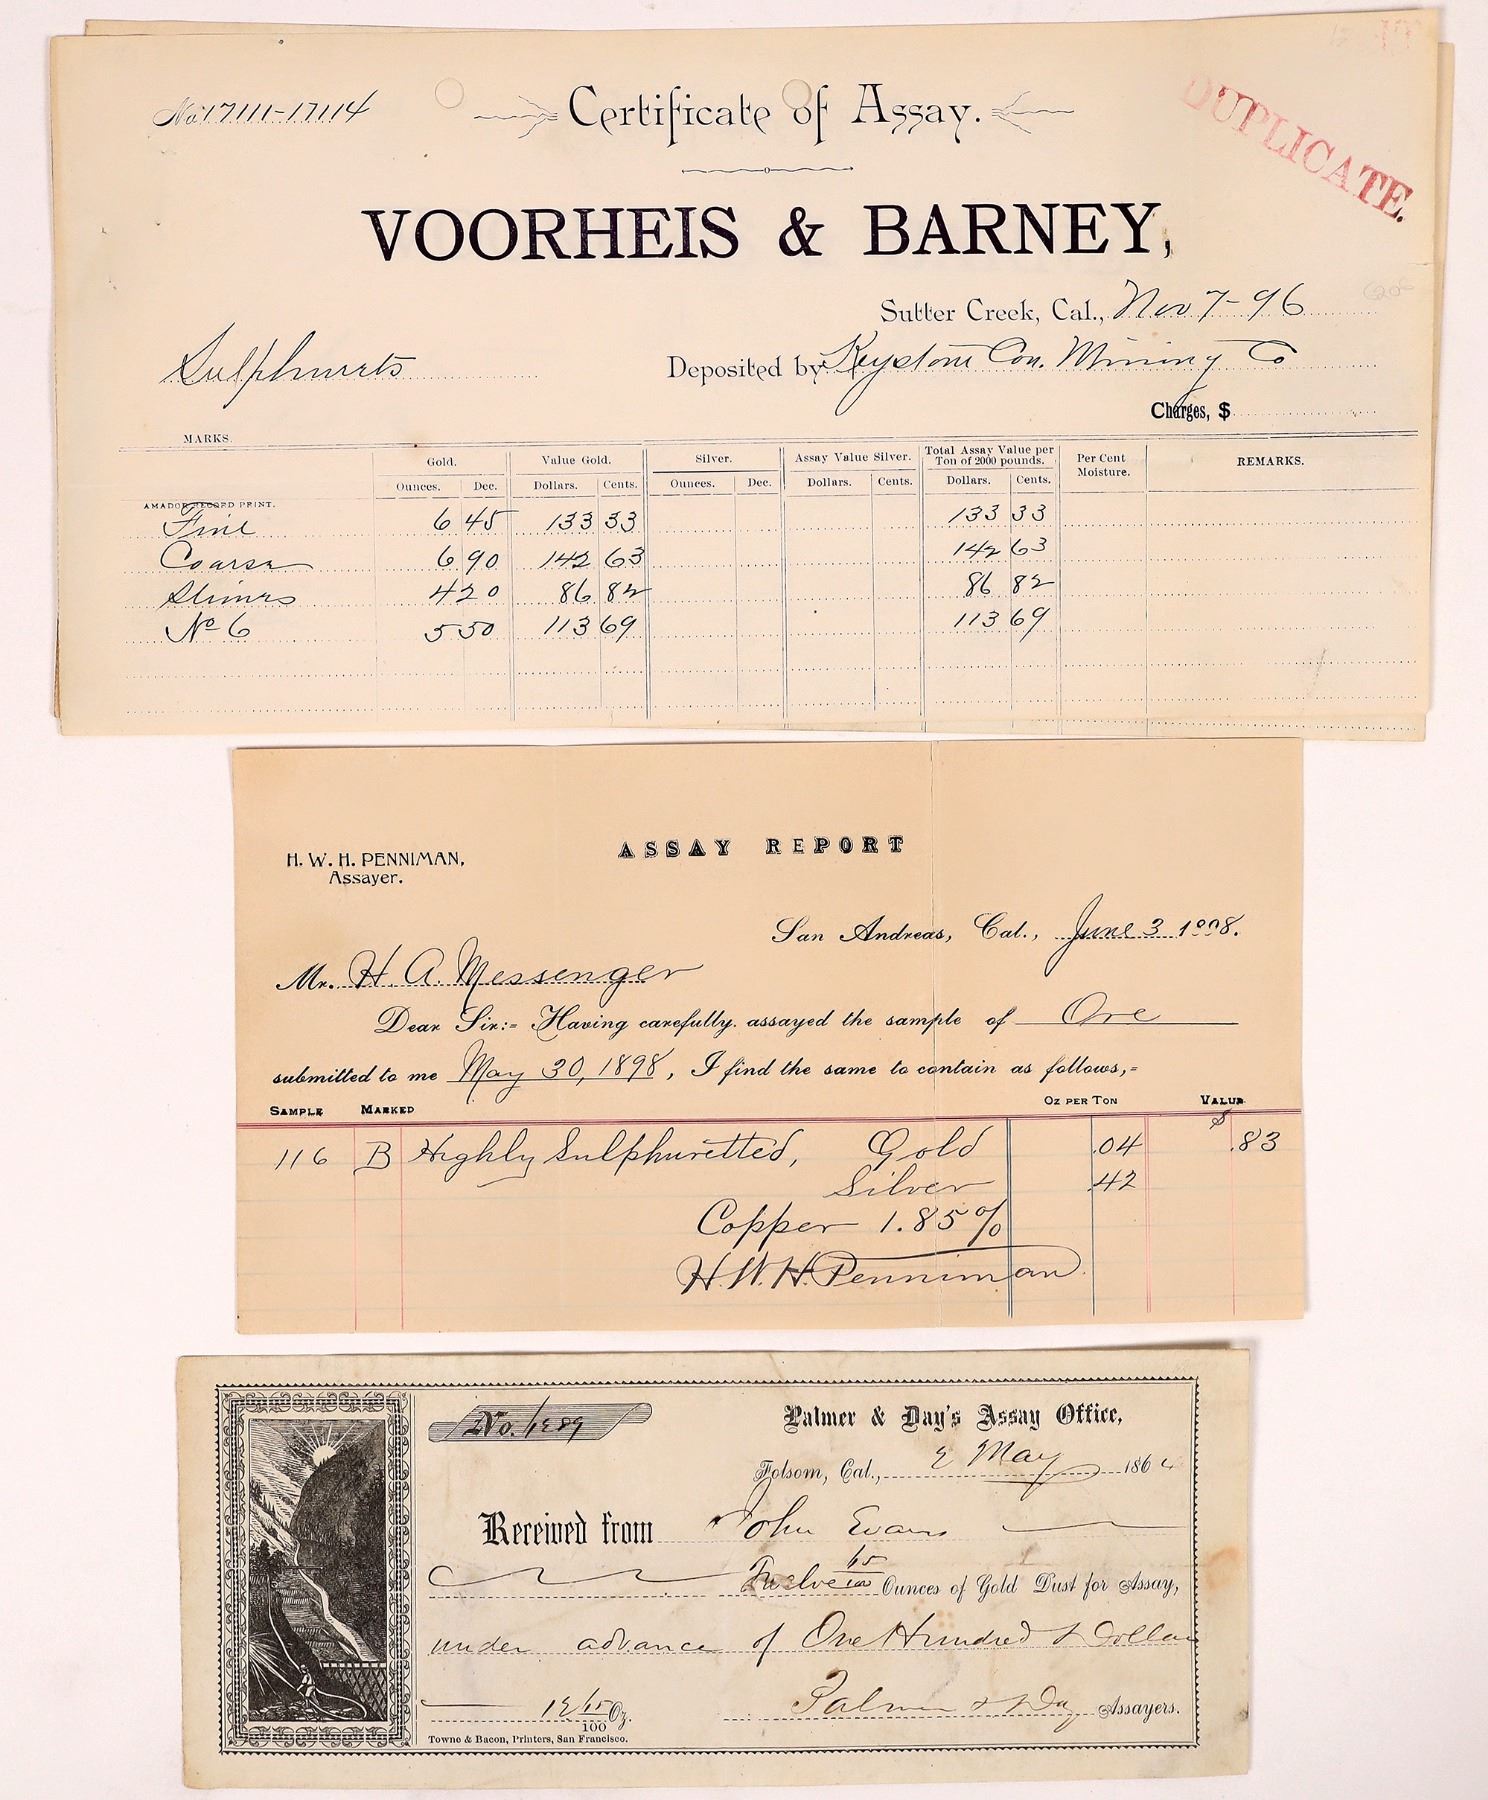 No 17111-17114
Certificate of Assay.
DUPLICATE.
VOORHEIS & BARNEY,
Sutter Creek, Cal., Nov 7-96
Sulphurets
Deposited by Keystone Con. Mining Co
Charges, $
MARKS.
Gold. Value Gold. Silver. Assay Value Silver. Total Assay Value per Ton of 2000 pounds. Per Cent Moisture. REMARKS.
Ounces. Dec. Dollars. Cents. Ounces. Dec. Dollars. Cents. Dollars. Cents.
AMADOR RECORD PRINT.
Fine 6 45 133 33 133 33
Coarse 6 90 142 63 142 63
Slimes 4 20 86 82 86 82
No 6 5 50 113 69 113 69
ASSAY REPORT
H. W. H. PENNIMAN,
Assayer.
San Andreas, Cal., June 3 1898.
Mr. H. A. Messenger
Dear Sir:= Having carefully assayed the sample of Ore
submitted to me May 30, 1898, I find the same to contain as follows,=
SAMPLE MARKED OZ PER TON VALUE
$
116 B Highly Sulphuretted, Gold .04 .83
Silver .42
Copper 1.85%
H. W. H. Penniman
No.
Palmer & Day's Assay Office,
Folsom, Cal., 2 May 1864
Received from John Evans
Twelve 65/100 Ounces of Gold Dust for Assay,
under advance of One Hundred & Dollars
12 65/100 Oz.
Palmer & Day Assayers.
Towne & Bacon, Printers, San Francisco.